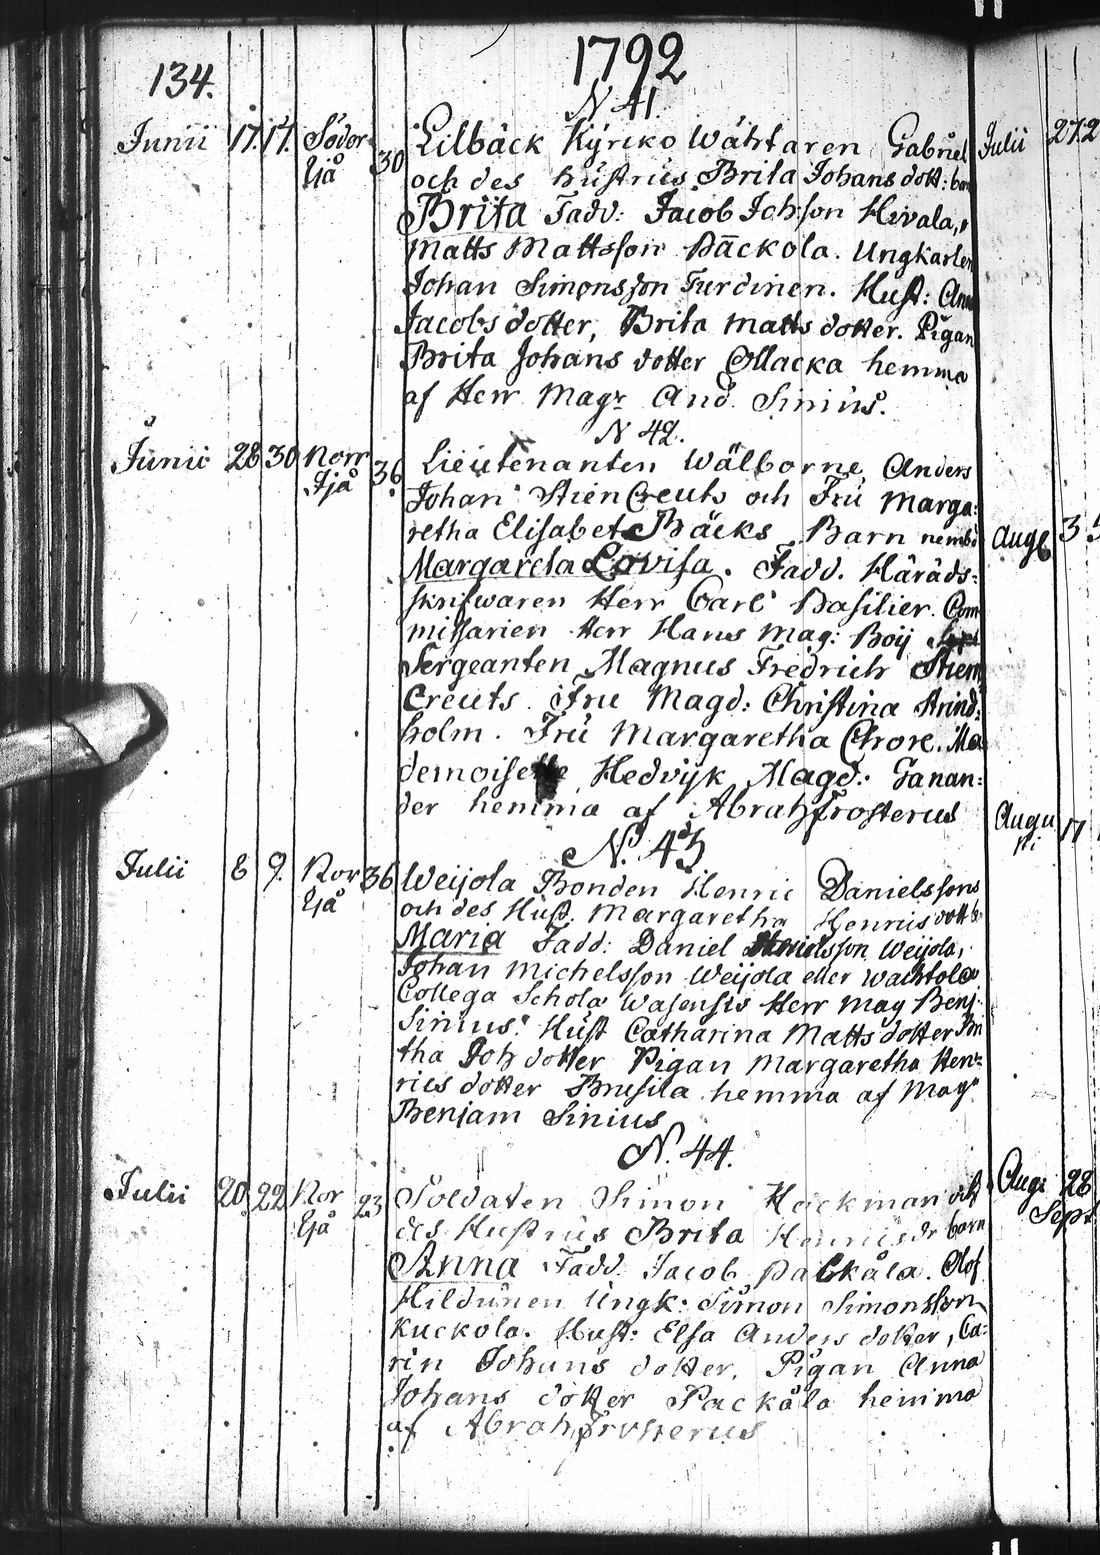 134.
1792
N 41.
Junii 17. 17. Södor 30 Lilbäck Kyrko Wäktaren Gabriel Julii 27.2
ljå och des hustrus Brita Johans dott: barn
Brita Fadd: Jacob Joh:son Hirvala,
Matts Mattsson Päckola. Ungkarlen
Johan Simonsson Turdinen. Hust: Anna
Jacobs dotter, Brita Matts dotter. Pigan
Brita Johans dotter Ollacka hemma
af Herr Magr And. Sinius.
N 42.
Junii 28 30 Norr 36 Lieutenanten Wälborne Anders
Ljå Johan StienCreuts och Fru Marga:
retha Elisabet Bäcks Barn nembl Aug 3 5
Margareta Lovisa. Fadd. Häräds:
skrifwaren Herr Carl Basilier. Com
missarien Herr Hans Mag: Boij
Sergeanten Magnus Fredrich Stien
Creuts. Fru Magd: Christina Strind:
holm. Fru Margaretha Chore. Ma
demoiselle Hedvijk Magd: Ganan:
der hemma af Abrah Frosterus
N. 43 Augu 17
sti
Julii 8 9. Nor 36 Weijola Bonden Henric Danielssons
ljå och des Hust. Margaretha Henrics dott b:
Maria Fadd: Daniel Danielsson Weijola,
Johan Michelsson Weijola eller Wachtola
Collega Schola Wasensis Herr Mag Benj:
Sinius. Hust Catharina Matts dotter Bri
tha Joh dotter Pigan Margaretha Hen:
rics dotter Brusila hemma af Magr
Benjam Sinius
N. 44.
Julii 20 22 Nor 23 Soldaten Simon Hackman och Aug: 28
ljå des Hustrus Brita Henrics dr barn Sept
Anna Fadd. Jacob Packåla. Olof
Hildunen Ungk: Simon Simonsson
Kuckola. Hust: Elsa Anders dotter, Ca:
rin Johans dotter, Pigan Anna
Johans dotter Packåla hemma
af Abrah Frosterus